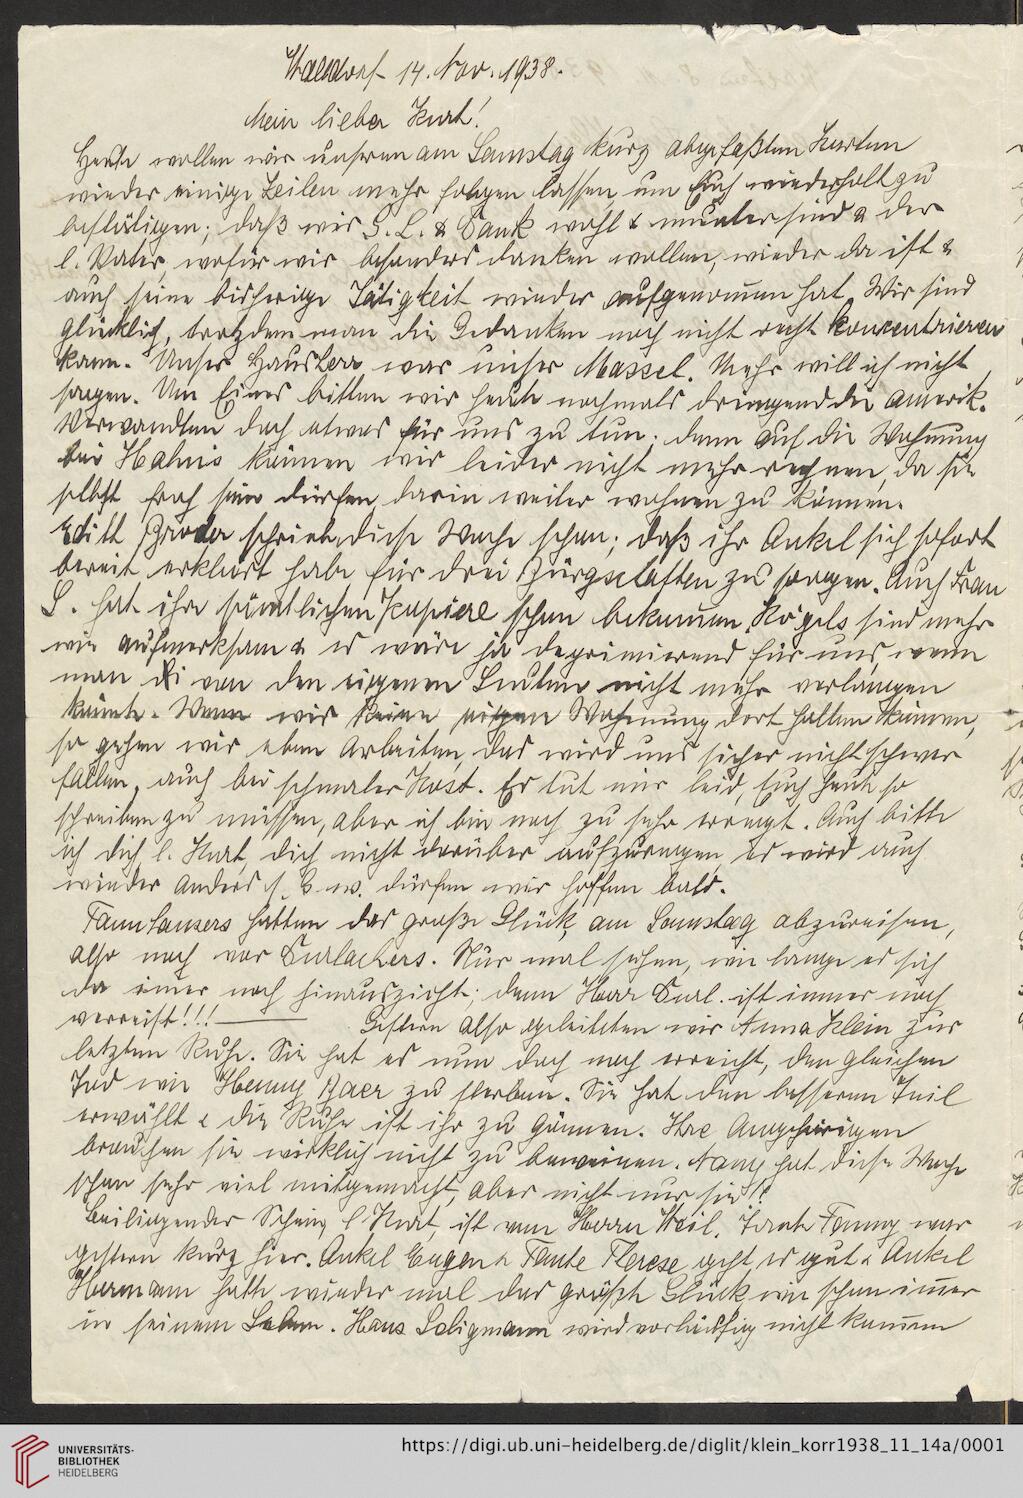 Walldorf 14. Nov. 1938.
Mein lieber Kurt!
Heute wollen wir unseren am Samstag kurz abgefaßten Karten
wieder einige Zeilen mehr folgen lassen, um Euch wiederholt zu
bestätigen, daß wir G. L. & Dank wohl & munter sind & der
l. Vater, wofür wir besonders danken wollen, wieder da ist &
auch seine bisherige Tätigkeit wieder aufgenommen hat. Wir sind
glücklich, trotzdem man die Gedanken noch nicht recht konzentrieren
kann. Unser Hausherr war unser Massel. Mehr will ich nicht
sagen. Um Eines bitten wir heute nochmals dringend die amerik.
Verwandten doch etwas für uns zu tun; denn auf die Wohnung
bei Hahns können wir leider nicht mehr rechnen, da sie
selbst froh sein dürfen, darin weiter wohnen zu können.
Edith schrieb diese Woche schon; daß ihr Onkel sich sofort
bereit erklärt habe für drei Bürgschaften zu sorgen. Auch Frau
S. hat ihre sämtlichen Papiere schon bekommen. Vogels sind mehr
wie aufmerksam & es wäre ja deprimierend für uns, wenn
man von den eigenen Leuten nicht mehr verlangen
könnte. Wenn wir keine eigene Wohnung dort halten können,
so gehen wir eben Arbeiten, das wird uns sicher nicht schwer
fallen, auch bei schmaler Kost. Es tut mir leid, Euch heute so
schreiben zu müssen, aber ich bin noch zu sehr erregt. Auch bitte
ich dich, l. Kurt, dich nicht darüber aufzuregen, es wird auch
wieder anders s. G. w. dürfen wir hoffen bald.
hatten das große Glück, am Samstag abzureisen,
also noch vor Durlachers. Nur mal sehen, wie lange es sich
da immer noch hinauszieht; denn Herr Durl. ist immer noch
verreist!!! — Gestern also geleiteten wir Anna Klein zur
letzten Ruhe. Sie hat es nun doch noch erreicht, den gleichen
Tod wie Henny Baer zu sterben. Sie hat den besseren Teil
erwählt & die Ruhe ist ihr zu gönnen. Ihre Angehörigen
brauchen sie wirklich nicht zu beweinen. hat diese Woche
schon sehr viel mitgemacht, aber nicht nur sie!!
Beiliegender Schein, l. Kurt, ist vom Herrn Weil. Tante Fanny war
gestern kurz hier. Onkel Eugen & Tante Therese geht es gut & Onkel
Hermann hatte wieder mal das größte Glück wie schon immer
in seinem Leben. Hans Seligmann wird vorläufig nicht kommen
UNIVERSITÄTS-
BIBLIOTHEK
HEIDELBERG
https://digi.ub.uni-heidelberg.de/diglit/klein_korr1938_11_14a/0001